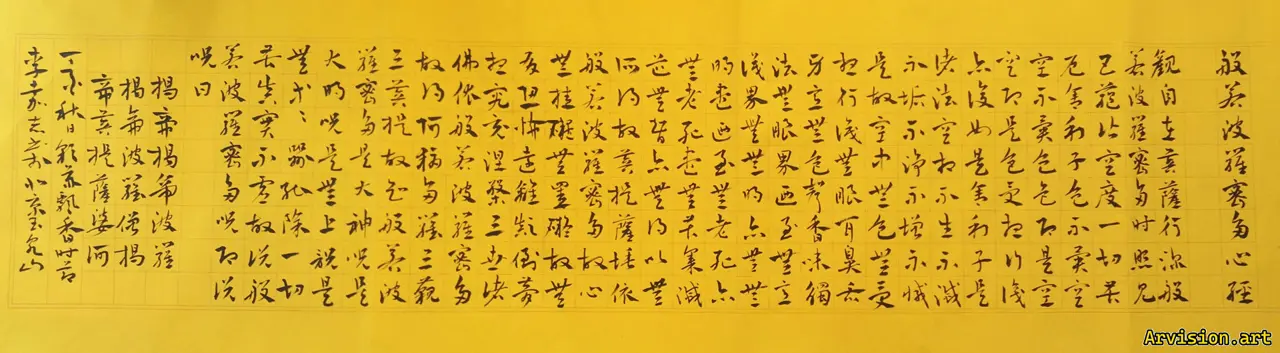 般若波羅蜜多心經
觀自在菩薩行深般
若波羅蜜多時照見
五蘊皆空度一切苦
厄舍利子色不異空
空不異色色即是空
空即是色受想行識
亦復如是舍利子是
諸法空相不生不滅
不垢不淨不增不減
是故空中無色無受
想行識無眼耳鼻舌
身意無色聲香味觸
法無眼界乃至無意
識界無無明亦無無
明盡乃至無老死亦
無老死盡無苦集滅
道無智亦無得以無
所得故菩提薩埵依
般若波羅蜜多故心
無罣礙無罣礙故無
有恐怖遠離顛倒夢
想究竟涅槃三世諸
佛依般若波羅蜜多
故得阿耨多羅三藐
三菩提故知般若波
羅蜜多是大神咒是
大明咒是無上咒是
無等等咒能除一切
苦真實不虛故說般
若波羅蜜多咒即說
咒曰
揭帝揭帝波羅
揭帝波羅僧揭
帝菩提薩婆訶
秋日飄香时节
李志北京山
Arvision.art